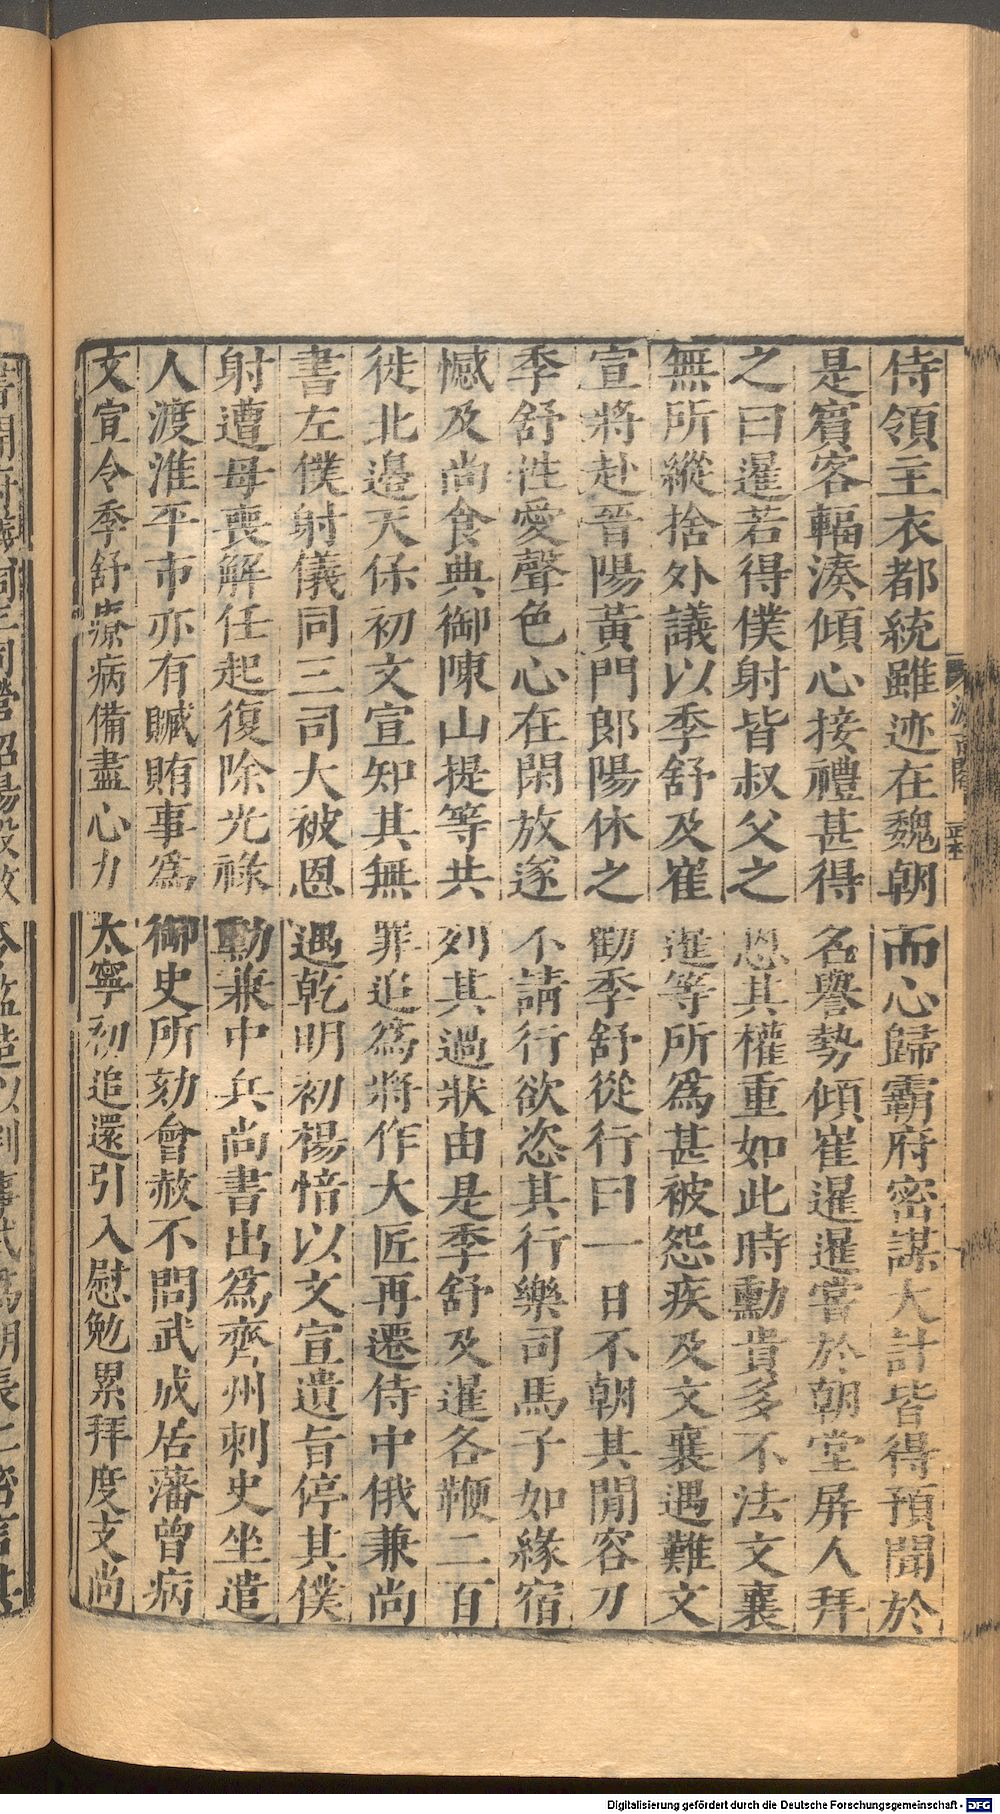 侍領主衣都統雖迹在魏朝而心歸霸府密謀大計皆得預聞於
是賓客輻湊傾心接禮甚得名譽勢傾崔暹暹嘗於朝堂屏人拜
之曰暹若得僕射皆叔父之恩其權重如此時勳貴多不法文襄
無所縱捨外議以季舒及崔暹等所爲甚被怨疾及文襄遇難文
宣將赴晉陽黃門郎陽休之勸季舒從行曰一日不朝其閒容刀
季舒性愛聲色心在閑放遂不請行欲恣其行樂司馬子如緣宿
憾及尚食典御陳山提等共列其過狀由是季舒及暹各鞭二百
徙北邊天保初文宣知其無罪追爲將作大匠再遷侍中俄兼尚
書左僕射儀同三司大被恩遇乾明初楊愔以文宣遺旨停其僕
射遭母喪解任起復除光祿勳兼中兵尚書出爲齊州刺史坐遣
人渡淮平市亦有贓賄事爲御史所劾會赦不問武成居藩曾病
文宣令季舒療病備盡心力太寧初追還引入慰勉累拜度支尚
Digitalisierung gefördert durch die Deutsche Forschungsgemeinschaft - DFG